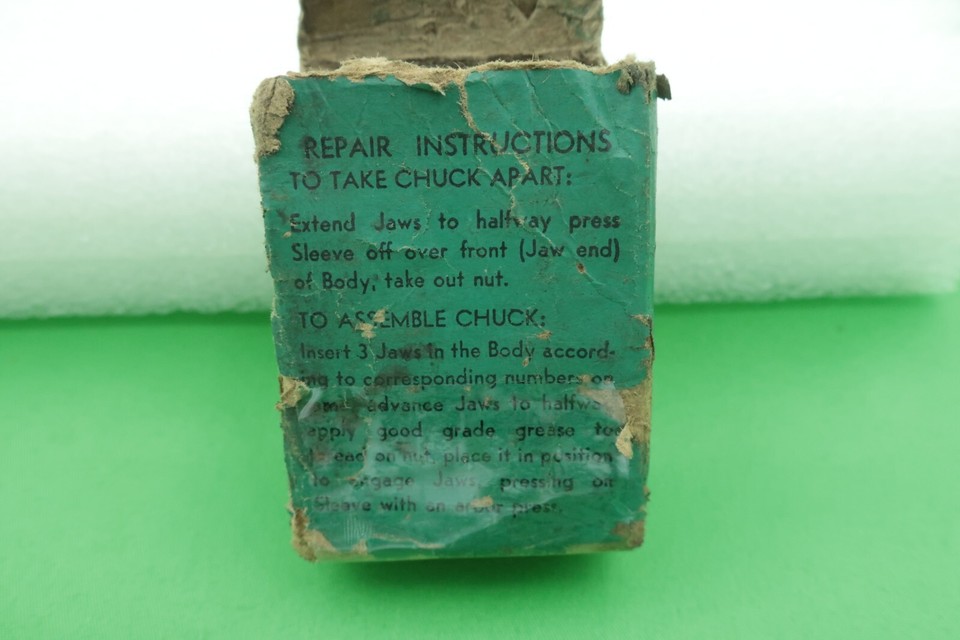 REPAIR INSTRUCTIONS
TO TAKE CHUCK APART:
Extend Jaws to halfway press
Sleeve off over front (Jaw end)
of Body, take out nut.
TO ASSEMBLE CHUCK:
Insert 3 Jaws in the Body accord-
ing to corresponding numbers on
advance Jaws to halfway
apply good grade grease to
on nut, place it in position
to engage Jaws, pressing on
Sleeve with an arbor press.